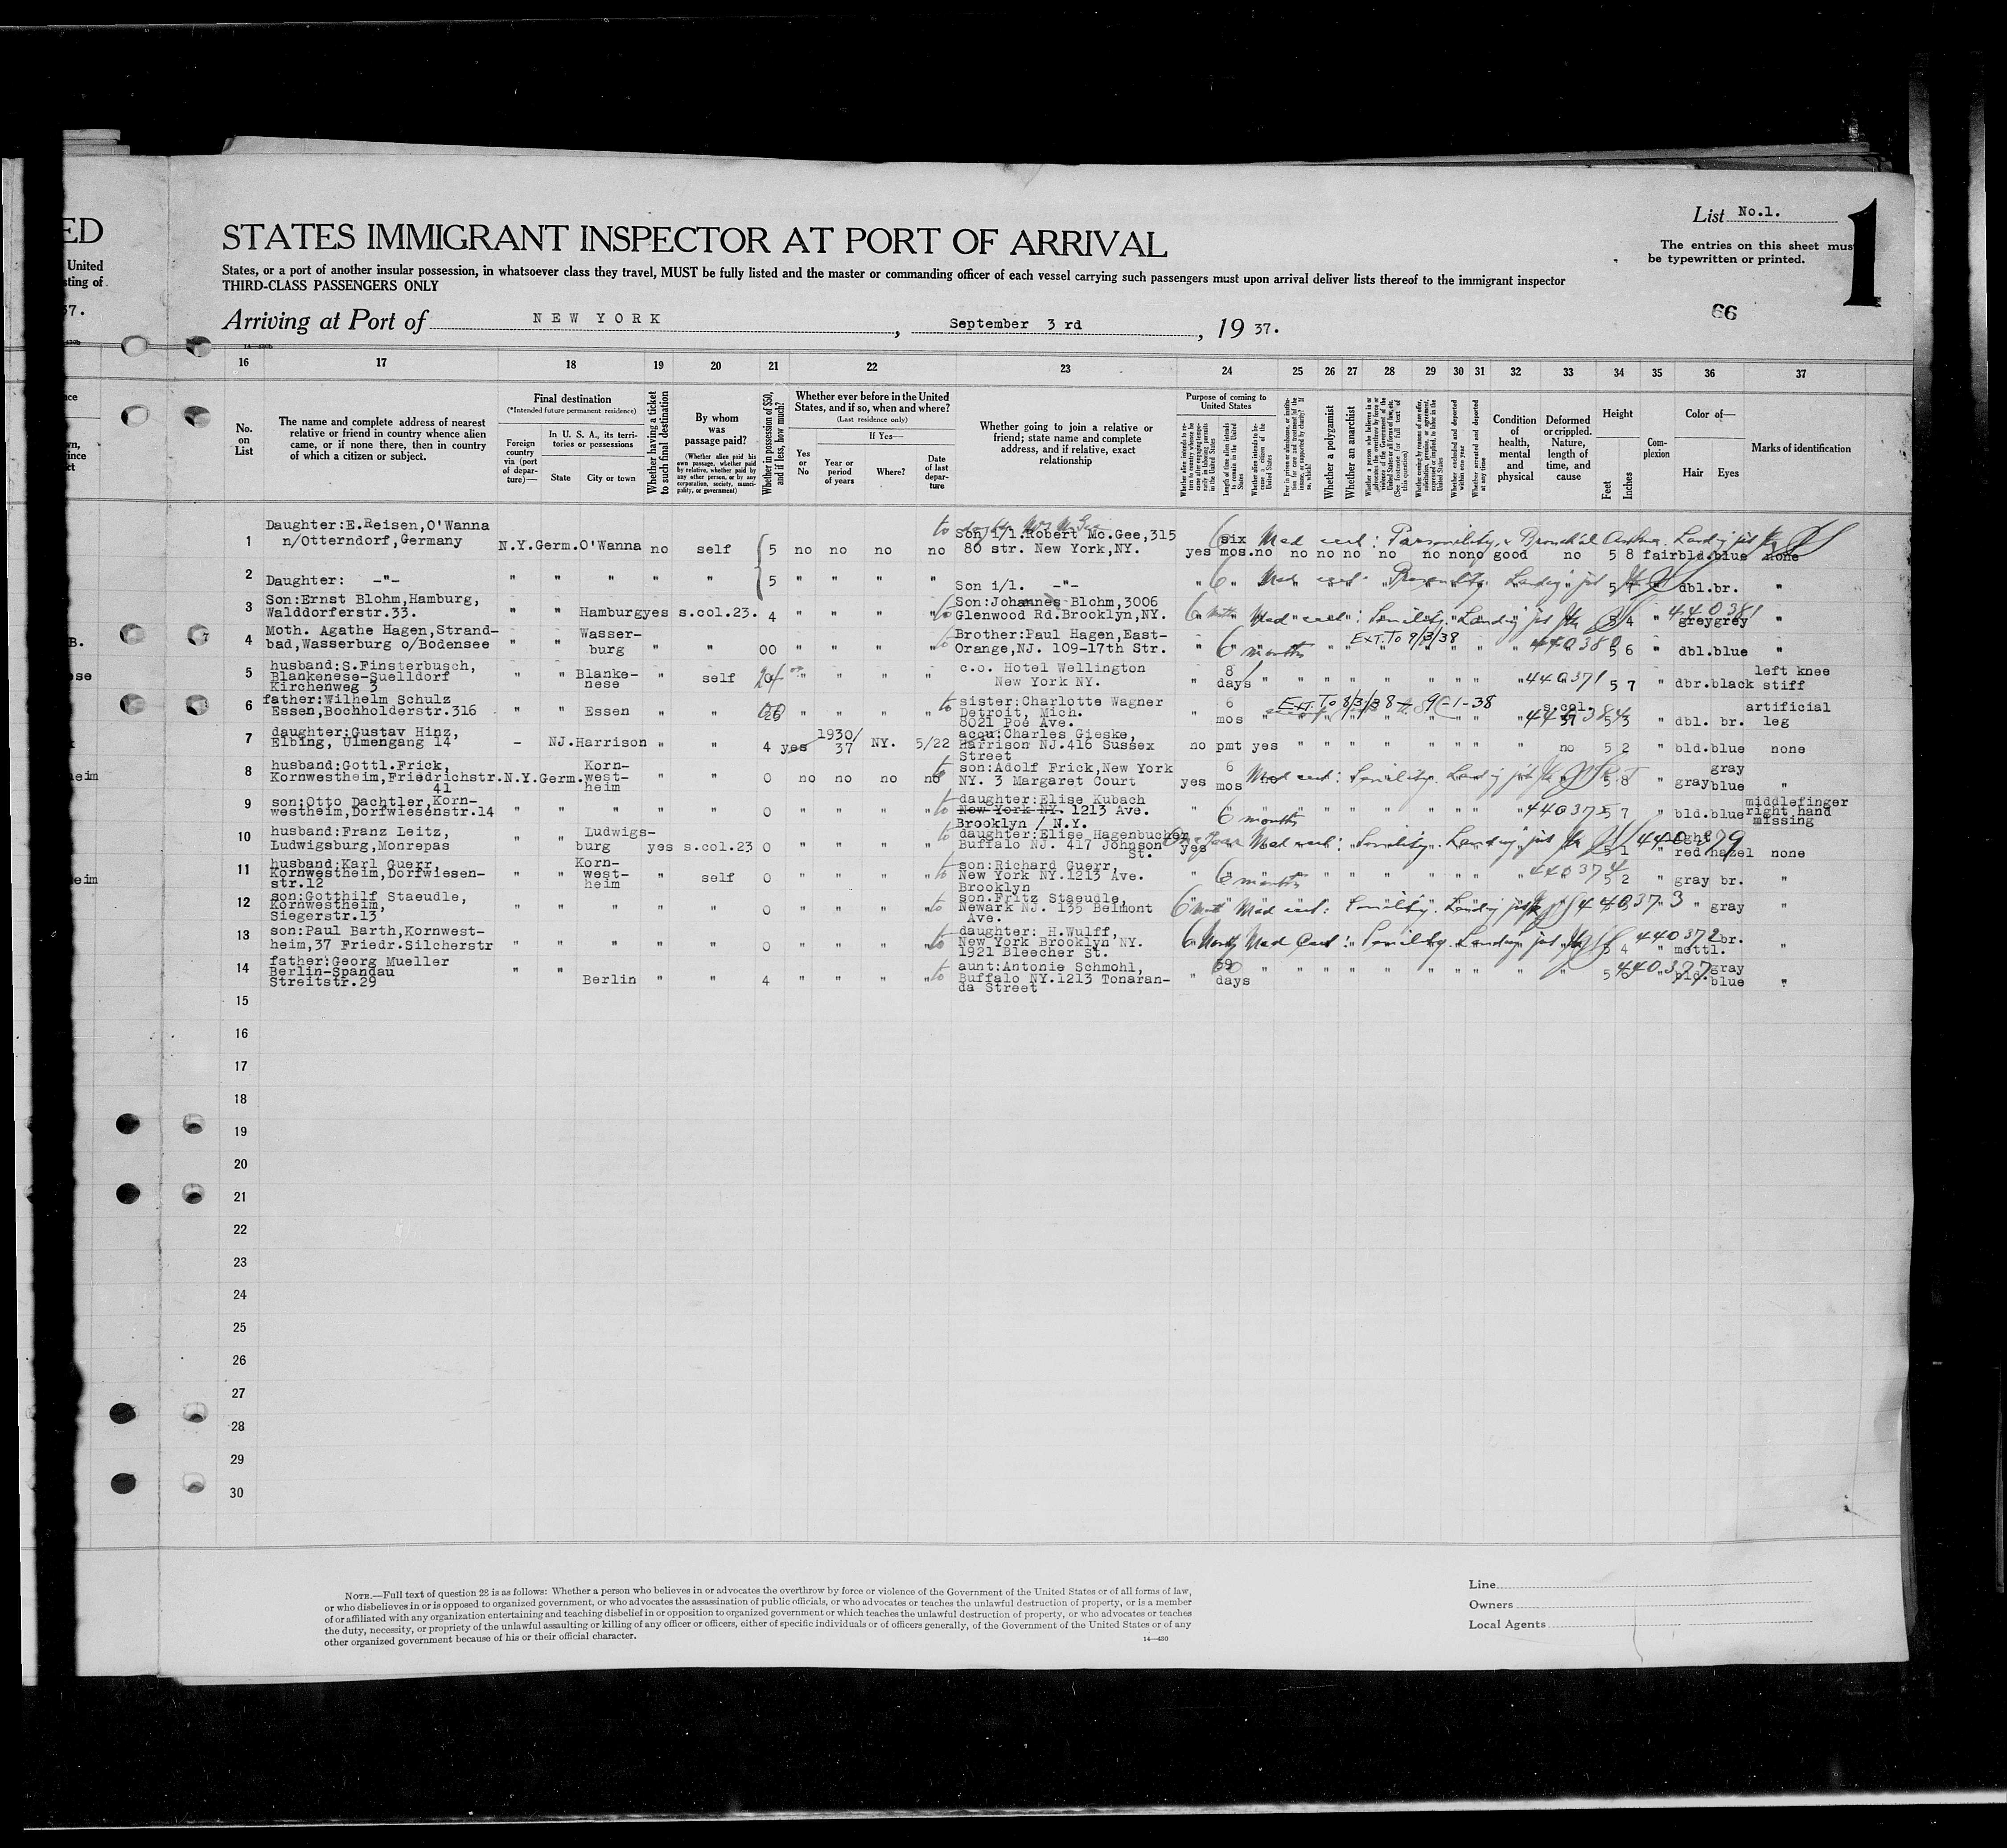 ED
United
sting of
37.
List No.1.
1
STATES IMMIGRANT INSPECTOR AT PORT OF ARRIVAL
The entries on this sheet must
be typewritten or printed.
States, or a port of another insular possession, in whatsoever class they travel, MUST be fully listed and the master or commanding officer of each vessel carrying such passengers must upon arrival deliver lists thereof to the immigrant inspector
THIRD-CLASS PASSENGERS ONLY
66
Arriving at Port of NEW YORK, September 3 rd, 19 37.
16 17 18 19 20 21 22 23 24 25 26 27 28 29 30 31 32 33 34 35 36 37
No. on List
The name and complete address of nearest relative or friend in country whence alien came, or if none there, then in country of which a citizen or subject.
Final destination
(*Intended future permanent residence)
Foreign country via (port of departure)—
In U. S. A., its territories or possessions
State
City or town
Whether having a ticket to such final destination
By whom was passage paid?
(Whether alien paid his own passage, whether paid by relative, whether paid by any other person, or by any corporation, society, municipality, or government)
Whether in possession of $50, and if less, how much?
Whether ever before in the United States, and if so, when and where?
(Last residence only)
Yes or No
If Yes—
Year or period of years
Where?
Date of last departure
Whether going to join a relative or friend; state name and complete address, and if relative, exact relationship
Purpose of coming to United States
Whether a polygamist
Whether an anarchist
Condition of health, mental and physical
Deformed or crippled. Nature, length of time, and cause
Height
Feet
Inches
Complexion
Color of—
Hair
Eyes
Marks of identification
1 Daughter:E.Reisen,O'Wanna
n/Otterndorf,Germany N.Y.Germ.O'Wanna no self 5 no no no no to Son i/l.Robert Mc.Gee,315
80 str. New York,NY. yes six mos.no no no no no no no no good no 5 8 fair bld.blue none
2 Daughter: -"- " " " " " 5 " " " " Son i/l. -"- " 6 " dbl.br. "
3 Son:Ernst Blohm,Hamburg,
Walddorferstr.33. " " Hamburg yes s.col.23. 4 " " " " to Son:Johannes Blohm,3006
Glenwood Rd.Brooklyn,NY. 6 Med cert: Senility. Landing 5 4 " grey grey 440381 "
4 Moth. Agathe Hagen,Strand-
bad,Wasserburg o/Bodensee " " Wasser-
burg " " 00 " " " " to Brother:Paul Hagen,East-
Orange,NJ. 109-17th Str. " 6 months EXT. TO 9/3/38 5 6 " dbl.blue "
5 husband:S.Finsterbusch,
Blankenese-Suelldorf
Kirchenweg 3 " " Blanke-
nese " self " " " " c.o. Hotel Wellington
New York NY. " 8 days " 440371 5 7 " dbr.black left knee
stiff
6 father:Wilhelm Schulz
Essen,Bochholderstr.316 " " Essen " " " " " " to sister:Charlotte Wagner
Detroit, Mich.
8021 Poe Ave. " 6 mos EXT. TO 8/3/38 9-1-38 s.col. " dbl. br. artificial
leg
7 daughter:Gustav Hinz,
Elbing, Ulmengang 14 - NJ.Harrison " " 4 yes 1930/
37 NY. 5/22 acqu:Charles Gieske,
Harrison NJ.416 Sussex
Street no pmt yes " " " no 5 2 " bld.blue none
8 husband:Gottl.Frick,
Kornwestheim,Friedrichstr.
41 N.Y.Germ. Korn-
west-
heim " " 0 no no no no to son:Adolf Frick,New York
NY. 3 Margaret Court yes 6 mos Med cert: Senility. Landing 5 8 " gray
gray blue "
9 son:Otto Dachtler,Korn-
westheim,Dorfwiesenstr.14 " " " " " 0 " " " " to daughter:Elise Kubach
New York NY. 1213 Ave.
Brooklyn / N.Y. " 6 months " 440375 5 7 " bld.blue middlefinger
right hand
missing
10 husband:Franz Leitz,
Ludwigsburg,Monrepas " " Ludwigs-
burg yes s.col.23 0 " " " " to daughter:Elise Hagenbucher
Buffalo NJ. 417 Johnson
St. yes Med cert: Senility. Landing 5 1 440379 red hazel none
11 husband:Karl Guerr,
Kornwestheim,Dorfwiesen-
str.12 " " Korn-
west-
heim " self 0 " " " " to son:Richard Guerr,
New York NY.1213 Ave.
Brooklyn " 6 months " 440374 5 2 " gray br. "
12 son:Gotthilf Staeudle,
Kornwestheim,
Siegerstr.13 " " " " " 0 " " " " to son.Fritz Staeudle,
Newark NJ. 135 Belmont
Ave. 6 Med cert: Senility. Landing 440373 " gray "
13 son:Paul Barth,Kornwest-
heim,37 Friedr.Silcherstr " " " " " 0 " " " " to daughter: H.Wulff,
New York Brooklyn NY.
1921 Bleecher St. 6 Months Med Cert: Senility. Landing 5 4 440372 br.
mottl. "
14 father:Georg Mueller
Berlin-Spandau
Streitstr.29 " " Berlin " " 4 " " " " to aunt:Antonie Schmohl,
Buffalo NY.1213 Tonaran-
da Street " days " 440377 bld. gray
blue "
15
16
17
18
19
20
21
22
23
24
25
26
27
28
29
30
NOTE.—Full text of question 28 is as follows: Whether a person who believes in or advocates the overthrow by force or violence of the Government of the United States or of all forms of law,
or who disbelieves in or is opposed to organized government, or who advocates the assassination of public officials, or who advocates or teaches the unlawful destruction of property, or is a member
of or affiliated with any organization entertaining and teaching disbelief in or opposition to organized government or which teaches the unlawful destruction of property, or who advocates or teaches
the duty, necessity, or propriety of the unlawful assaulting or killing of any officer or officers, either of specific individuals or of officers generally, of the Government of the United States or of any
other organized government because of his or their official character.
14—430
Line
Owners
Local Agents